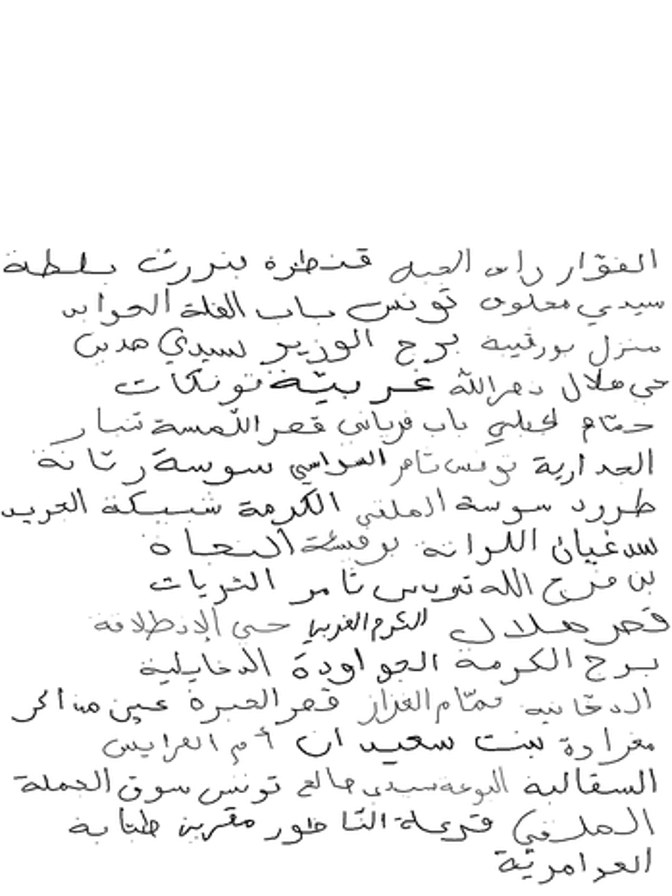 الفوّار راس الجبل قنطرة بنزرت بلطة
سيدي مخلوف تونس باب الفلة الحوايد
منزل بورقيبة برج الوزير لسيدي هديب
حي هلال ذهر الله غربيّة تونكات
حمّام باب قصر اللمسة تنبار
الجدارية تونس ثامر السواسي سوسة رنّانة
طرود سوسة الملفى الكرمة شبيكة الجريد
سدغيان اللوانة بوفيشة النجاة
بن فرج الله تونس ثامر الثريات
قصر هلال الكرم الغربي حي الانطلاقة
برج الكرمة الجواودة الدخايلية
الدخانية حمّام الغزاز قصر الجبرة عين مذاكر
مغرادة بنت سعيدان أم العرايس
السقالبة سيدي صالح تونس سوق الجملة
الملفى قرعة النّاظور مقرين طبّابة
العوامريّة